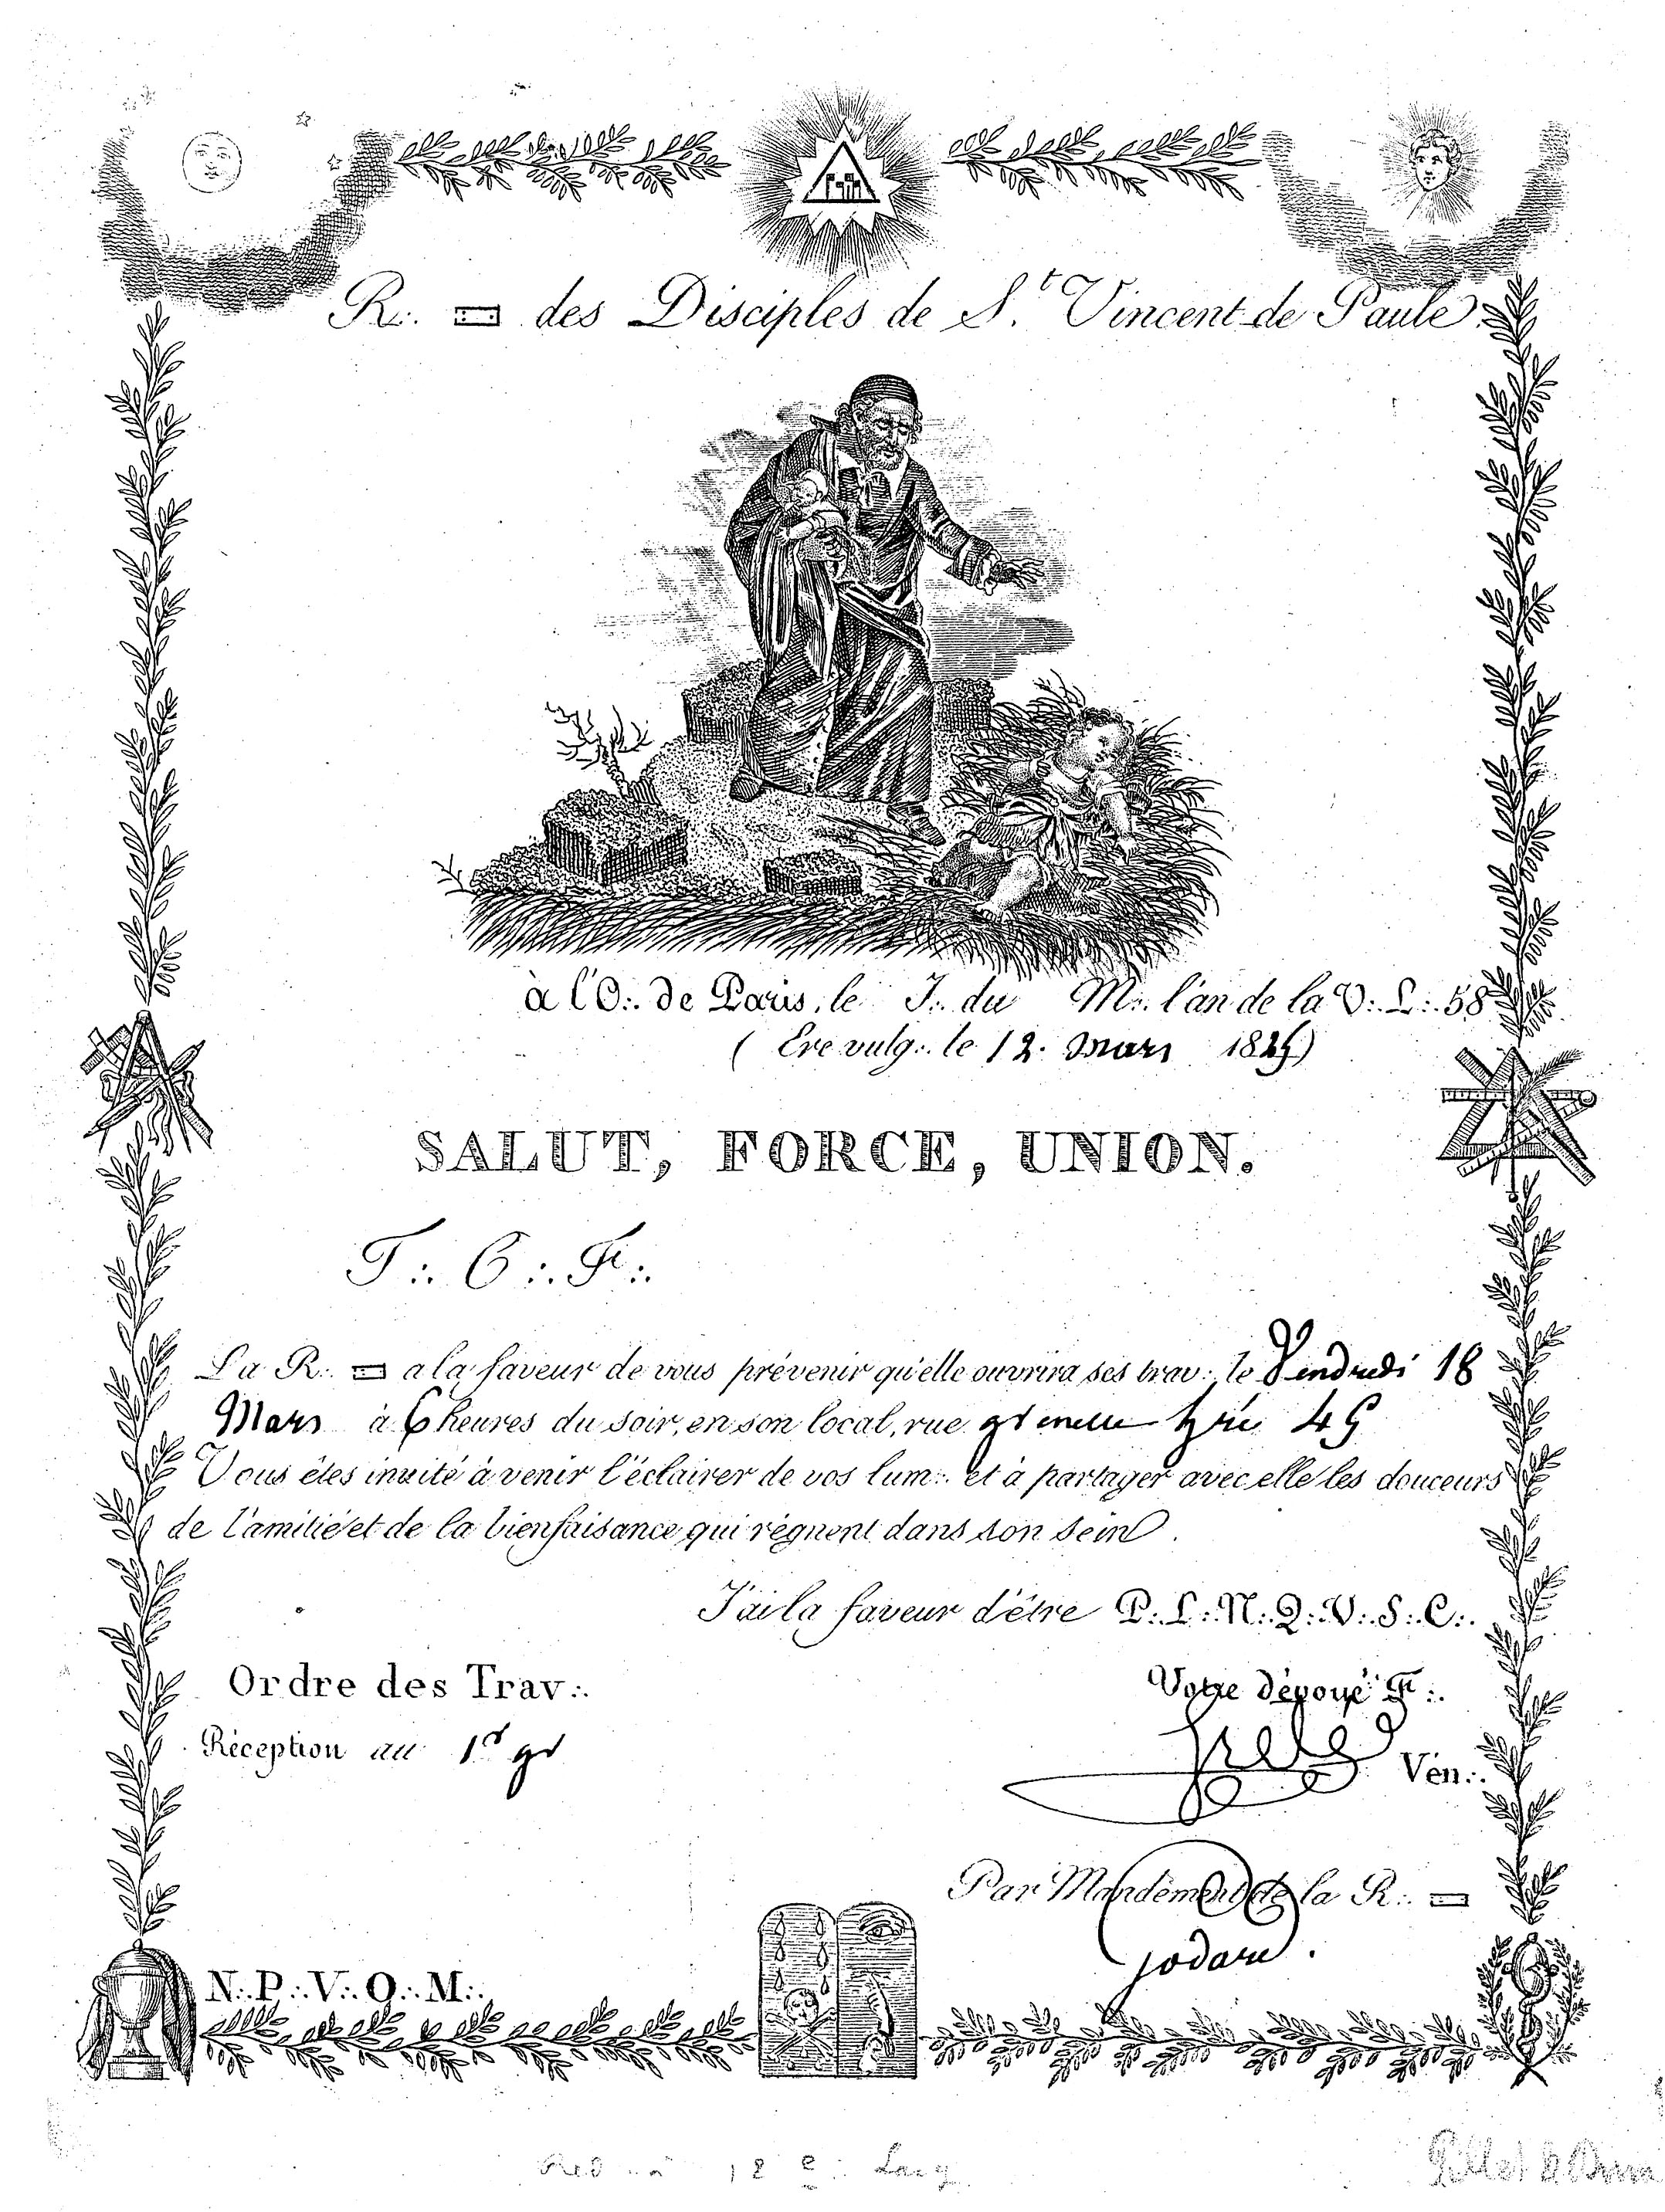 R∴ ▭ des Disciples de S.t Vincent de Paule
à l'O∴ de Paris, le J∴ du M∴ l'an de la V∴ L∴ 58
( Ere vulg∴ le 12. Mars 1825)
SALUT, FORCE, UNION.
T∴ C∴ F∴
La R∴ ▭ a la faveur de vous prévenir qu'elle ouvrira ses trav∴ le Vendredi 18
Mars à 6 heures du soir, en son local, rue grenelle h.ré 45
Vous êtes invité à venir l'éclairer de vos lum∴ et à partager avec elle les douceurs
de l'amitié et de la bienfaisance qui règnent dans son sein.
J'ai la faveur d'être P∴ L∴ N∴ Q∴ V∴ S∴ C∴
Ordre des Trav∴
Votre dévoué F∴
Réception au 1er gr
Vén∴
Par Mandement de la R∴ ▭
N∴ P∴ V∴ O∴ M∴